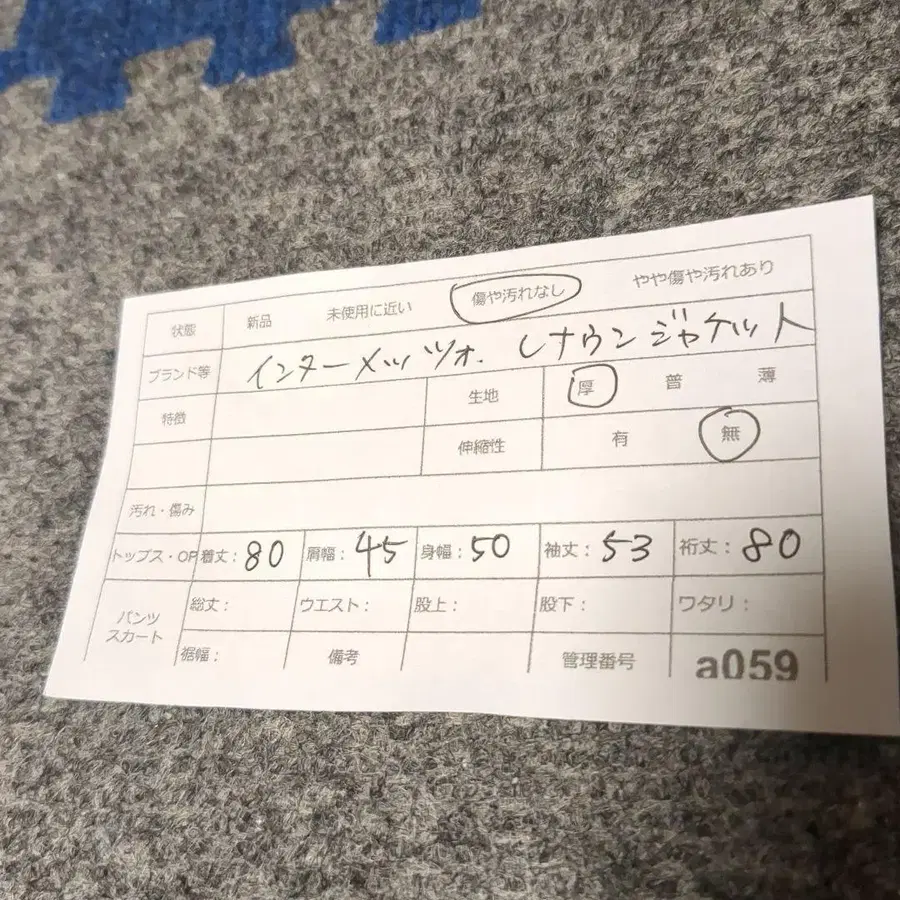 状態 新品 未使用に近い 傷や汚れなし やや傷や汚れあり
ブランド等 インターメッツォ. レナウン ジャケット
特徴 生地 厚 普 薄
伸縮性 有 無
汚れ・傷み
トップス・OP 着丈:80 肩幅:45 身幅:50 袖丈:53 裄丈:80
パンツ スカート 総丈: ウエスト: 股上: 股下: ワタリ:
裾幅: 備考 管理番号 a059